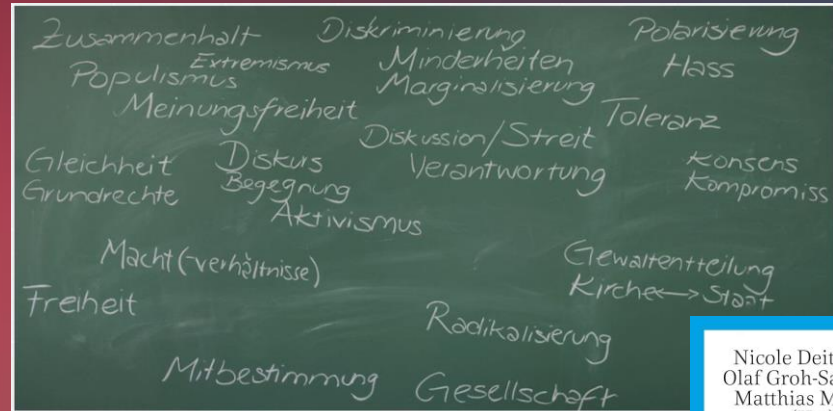 Zusammenhalt
Diskriminierung
Polarisierung
Extremismus
Minderheiten
Hass
Populismus
Marginalisierung
Meinungsfreiheit
Toleranz
Diskussion/Streit
Gleichheit
Diskurs
Verantwortung
Konsens
Grundrechte
Begegnung
Kompromiss
Aktivismus
Macht(-verhältnisse)
Gewaltentteilung
Kirche ↔ Staat
Freiheit
Radikalisierung
Mitbestimmung
Gesellschaft
Nicole
Olaf
Matthias